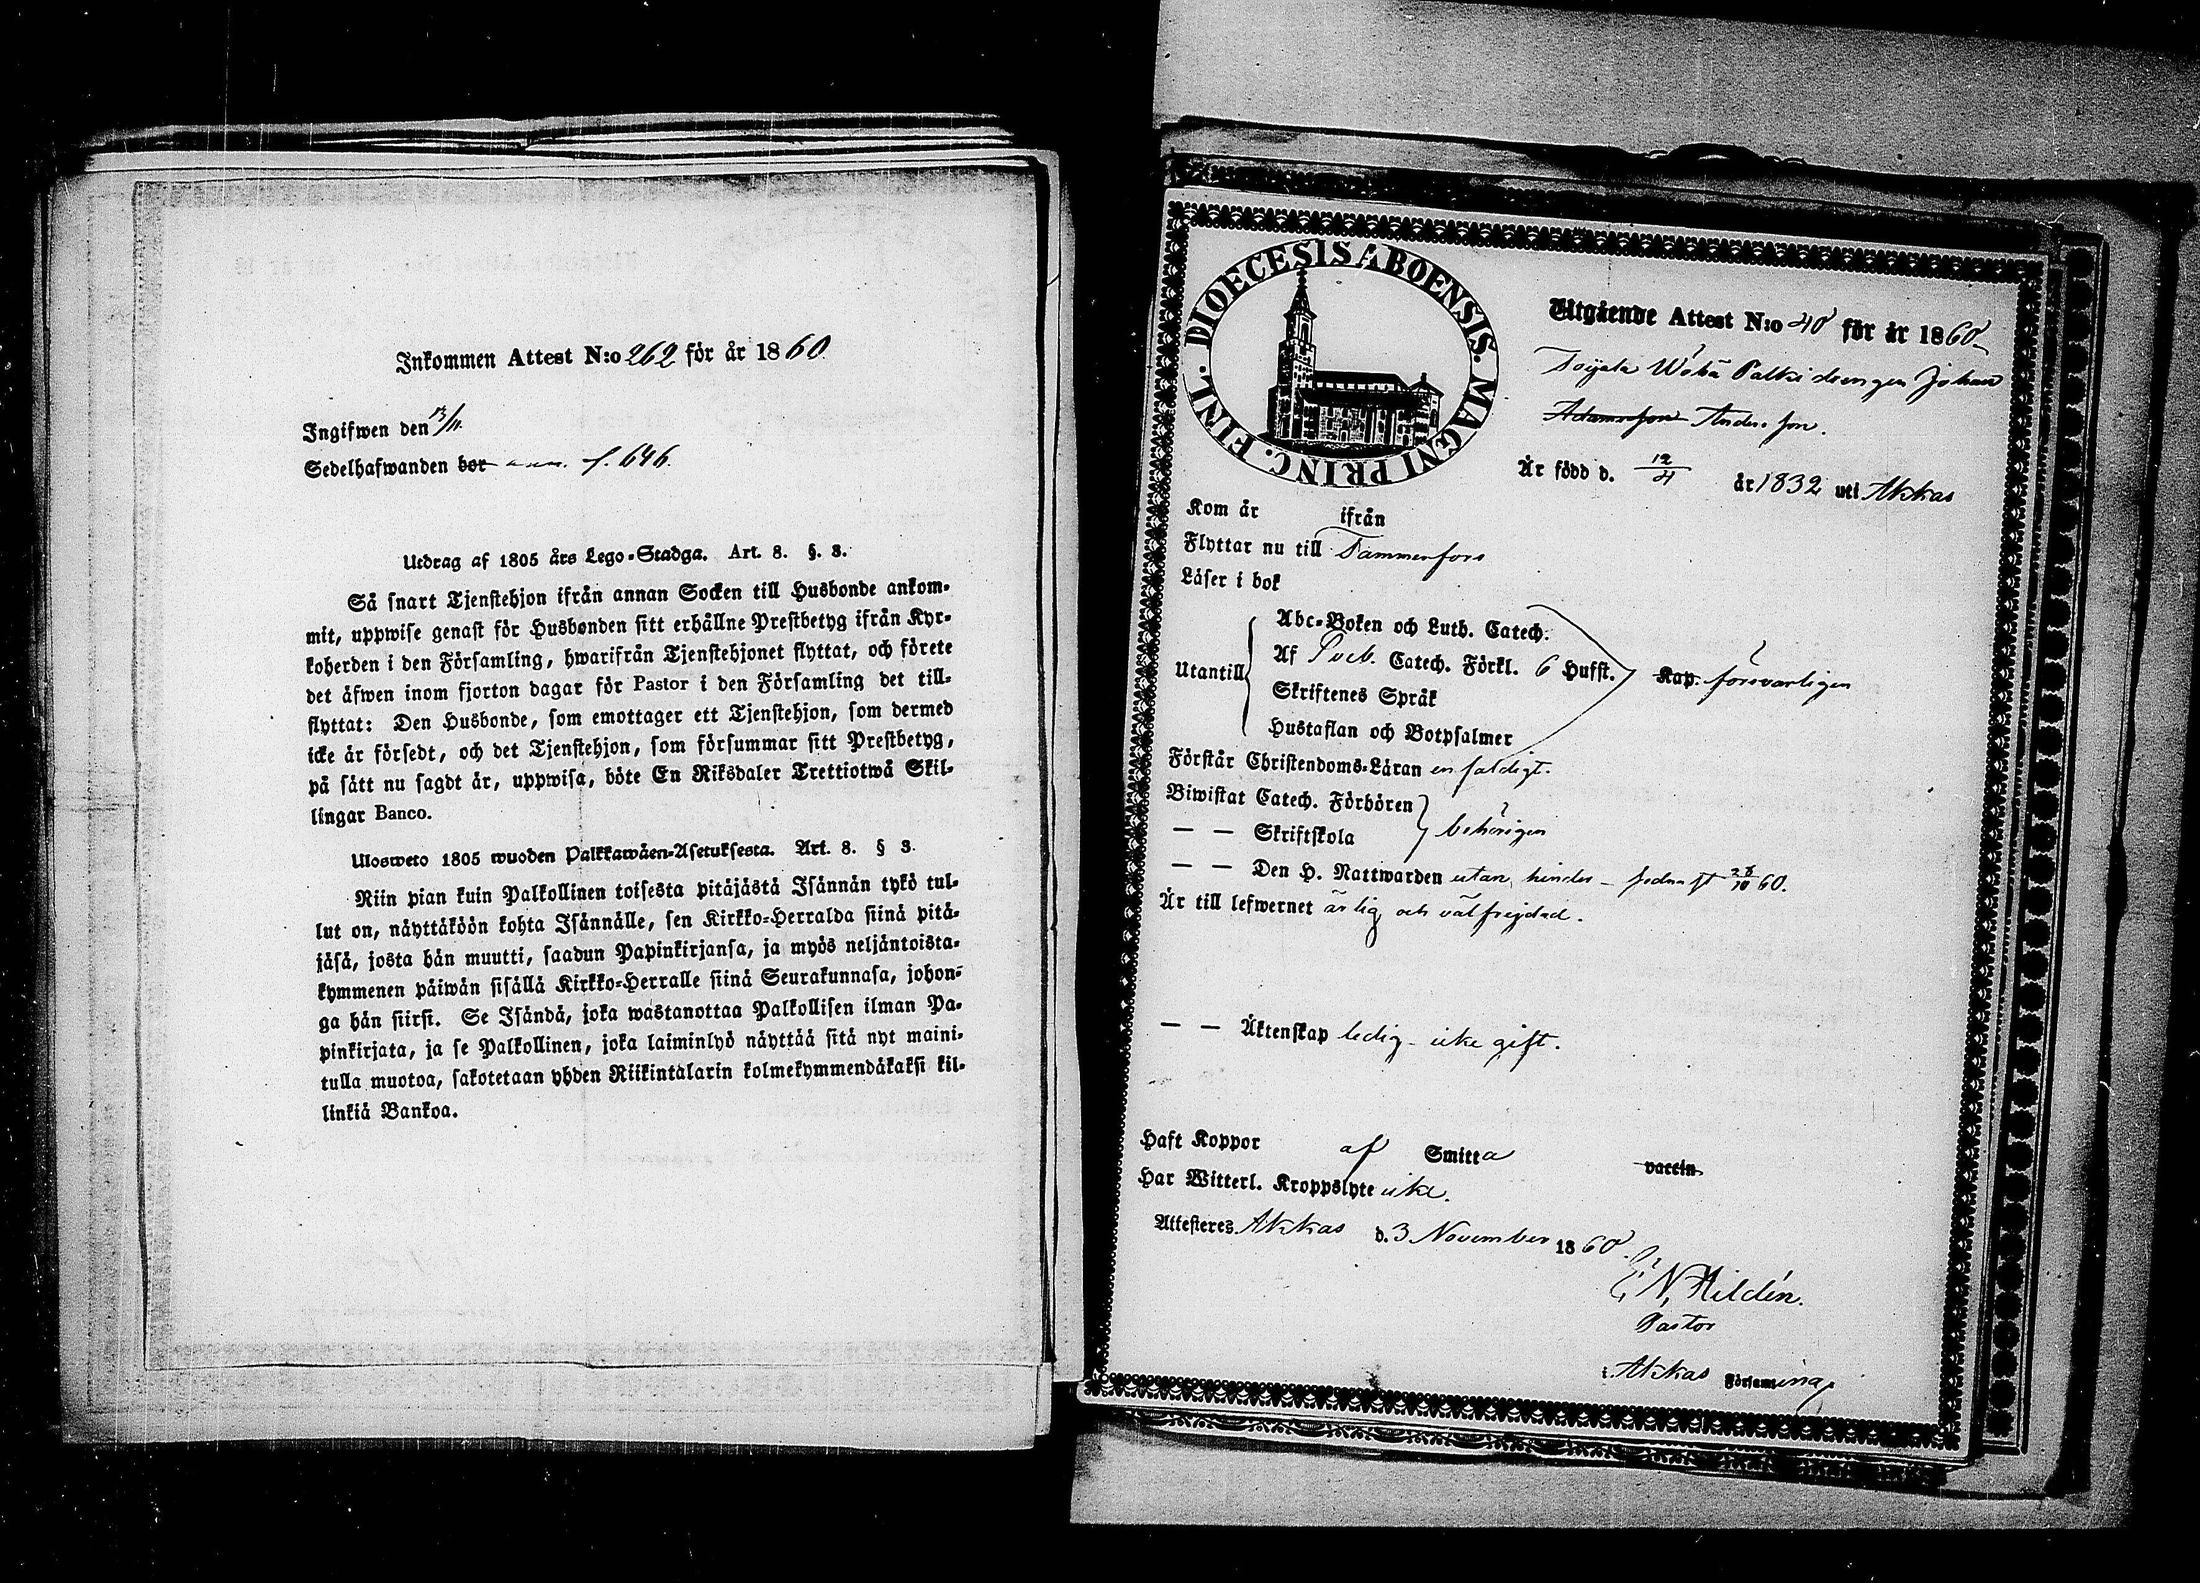 Inkommen Attest N:o 262 för år 1860
Ingifwen den 13/11
Sedelhafwanden bor ann. f. 646.
Utdrag af 1805 års Lego-Stadga. Art. 8. §. 3.
Så snart Tjenstehjon ifrån annan Socken till Husbonde ankom-
mit, uppwise genast för Husbonden sitt erhållne Prestbetyg ifrån Kyr-
koherden i den Församling, hwarifrån Tjenstehjonet flyttat, och förete
det äfwen inom fjorton dagar för Pastor i den Församling det till-
flyttat: Den Husbonde, som emottager ett Tjenstehjon, som dermed
icke är försedt, och det Tjenstehjon, som försummar sitt Prestbetyg,
på sätt nu sagdt är, uppwisa, böte En Riksdaler Trettiotwå Skil-
lingar Banco.
Ulosweto 1805 wuoden Palkkawäen-Asetuksesta. Art. 8. § 3.
Niin pian kuin Palkollinen toisesta pitäjästä Isännän tykö tul-
lut on, näyttäköön kohta Isännälle, sen Kirkko-Herralda siinä pitä-
jäsä, josta hän muutti, saadun Papinkirjansa, ja myös neljäntoista-
kymmenen päiwän sisällä Kirkko-Herralle siinä Seurakunnasa, johon-
ga hän siirsi. Se Isändä, joka wastanottaa Palkollisen ilman Pa-
pinkirjata, ja se Palkollinen, joka laiminlyö näyttää sitä nyt maini-
tulla muotoa, sakotetaan yhden Riikintalarin kolmekymmendäkaksi kil-
linkiä Bankoa.
DIOECESIS ABOENSIS. MAGNI PRINC. FINL.
Utgående Attest N:o 40 för år 1860
Toijala Wähä Palki drengen Johan
Adamsson Anders son.
Är född d. 12/4 år 1832 uti Akkas
Kom år ifrån
Flyttar nu till Tammerfors
Läser i bok
Abc-Boken och Luth. Catech.
Utantill Af Sveb. Catech. Förkl. 6 Hufst. Kap. försvarligen
Skriftenes Språk
Hustaflan och Botpsalmer
Förstår Christendoms-Läran enfaldigt.
Biwistat Catech. Förhören
— — Skriftskola behörigen
— — Den H. Nattwarden utan hinder - sednast 28/10 60.
Är till lefwernet ärlig och välfrejdad.
— — Äktenskap ledig - icke gift.
Haft Koppor af Smitta vaccin
Har Witterl. Kroppslyte icke.
Attesteres Akkas d. 3 November 1860.
E. N. Hildén.
Pastor
i Akkas Församling